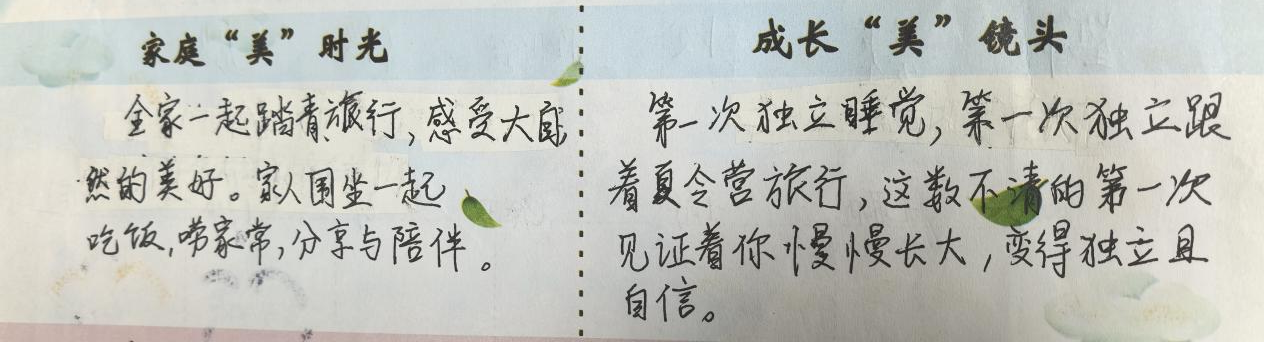 家庭“美”时光
全家一起踏青旅行，感受大自
然的美好。家人围坐一起
吃饭，唠家常，分享与陪伴。
成长“美”镜头
第一次独立睡觉，第一次独立跟
着夏令营旅行，这数不清的第一次
见证着你慢慢长大，变得独立且
自信。